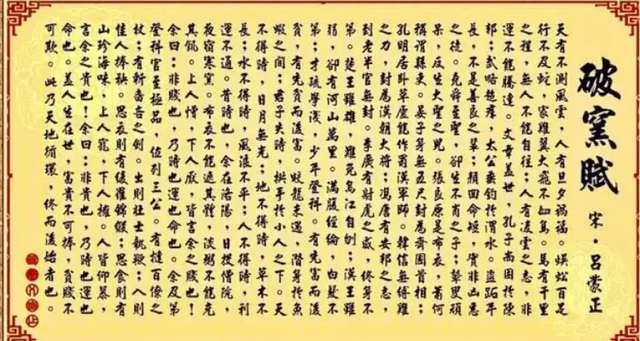 破窯賦
宋·呂蒙正
天有不測風雲，人有旦夕禍福。蜈蚣百足
行不及蛇，家雞翼大飛不如鳥。馬有千里
之程，無人不能自往；人有凌雲之志，非
運不能騰達。文章蓋世，孔子尚困於陳
邦；武略超群，太公垂釣於渭水。盜跖年
長，不是善良之輩；顏回命短，實非凶惡
之徒。堯舜至聖，卻生不肖之子；瞽叟頑
呆，反生大聖之兒。張良原是布衣，蕭何
稱謂縣吏。晏子身無五尺封為齊國首相；
孔明居卧草廬能作蜀漢軍師。韓信無縛雞
之力，封為漢朝大將；馮唐有安邦之志，
到老半官無封。李廣有射虎之威，終身不
第。楚王雖雄，難免烏江自刎；漢王雖
弱，卻有河山萬里。滿腹經綸，白髮不
第；才疏學淺，少年登科。有先富而後
貧，有先貧而後富。蛟龍未遇，潛身於魚
蝦之間；君子失時，拱手於小人之下。天
不得時，日月無光；地不得時，草木不
長；水不得時，風浪不平；人不得時，利
運不通。昔時也，余在洛陽，日投僧院，
夜宿寒窯。布衣不能遮其體，淡粥不能充
其飢。上人憎，下人厭，皆言余之賤也！
余曰：非賤也，乃時也運也命也。余及第
登科官至極品，位列三公。有撻百僚之
杖；有斬嗇吝之劍。出則壯士執鞭；入則
佳人捧秧。思衣則有綾羅錦緞；思食則有
山珍海味，上人寵，下人擁。人皆仰慕，
言余之貴也！余曰：非貴也，乃時也運也
命也。蓋人生在世，富貴不可捧，貧賤不
可欺。此乃天地循環，終而復始者也。